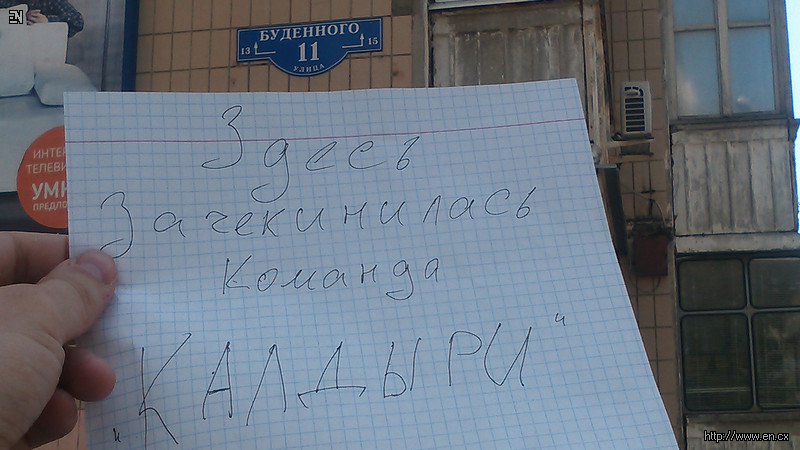 EN
БУДЕННОГО
13 11 15
УЛИЦА
ИНТЕР
ТЕЛЕВИ
УМН
ПРЕДЛО
Здесь
Зачекинилась
команда
"КАЛДЫРИ"
http://www.en.cx